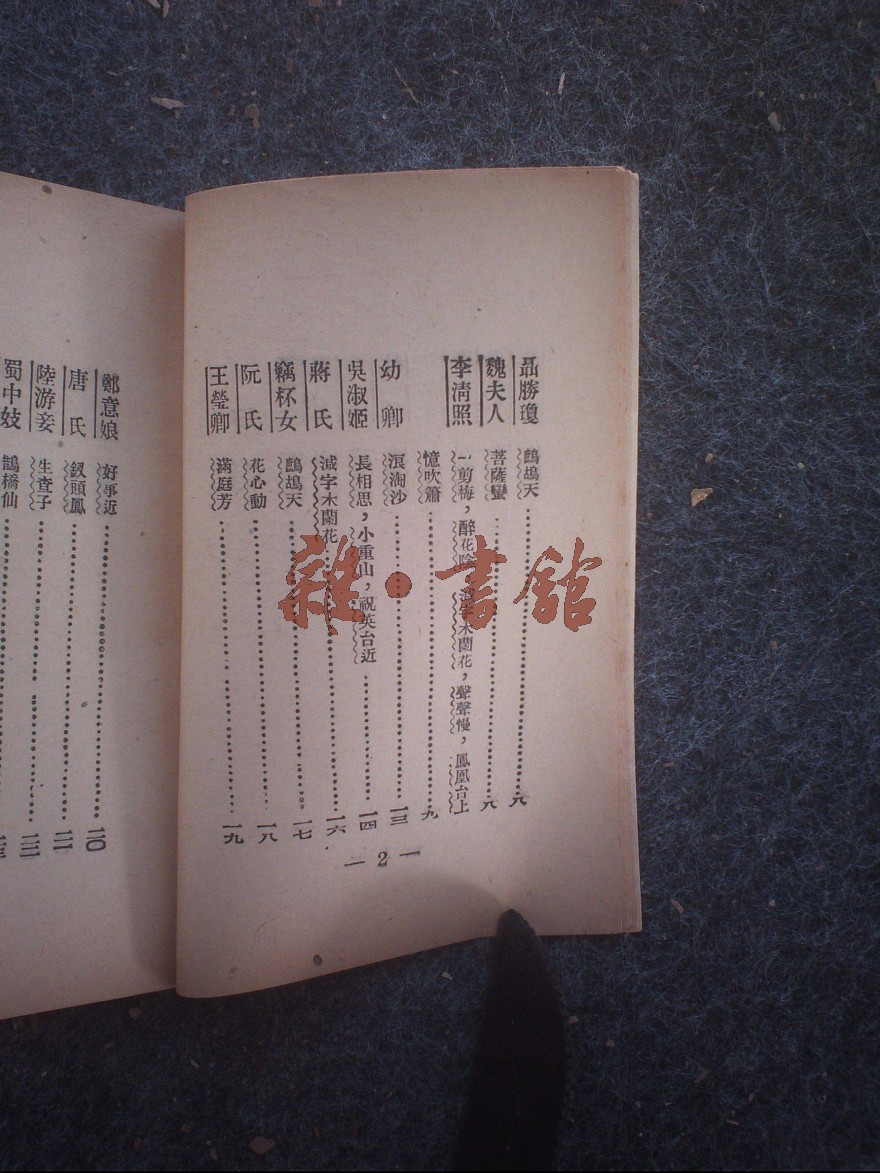 聶勝瓊 鷓鴣天……八
魏夫人 菩薩蠻……八
李清照 一剪梅，醉花陰，減字木蘭花，聲聲慢，鳳凰台上
憶吹簫……九
幼卿 浪淘沙……一三
吳淑姬 長相思，小重山，祝英台近……一四
蔣氏 減字木蘭花……一六
竊杯女 鷓鴣天……一七
阮氏 花心動……一八
王瑩卿 滿庭芳……一九
— 2 —
鄭意娘 好事近……二〇
唐氏 釵頭鳳……二一
陸游妾 生查子……二二
蜀中妓 鵲橋仙……
雜·書館